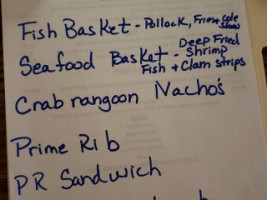 Fish Basket - Pollock, Fries + Cole Slaw
Seafood Basket - Deep Fried Shrimp
Fish + Clam Strips
Crab rangoon Nachos
Prime Rib
PR Sandwich